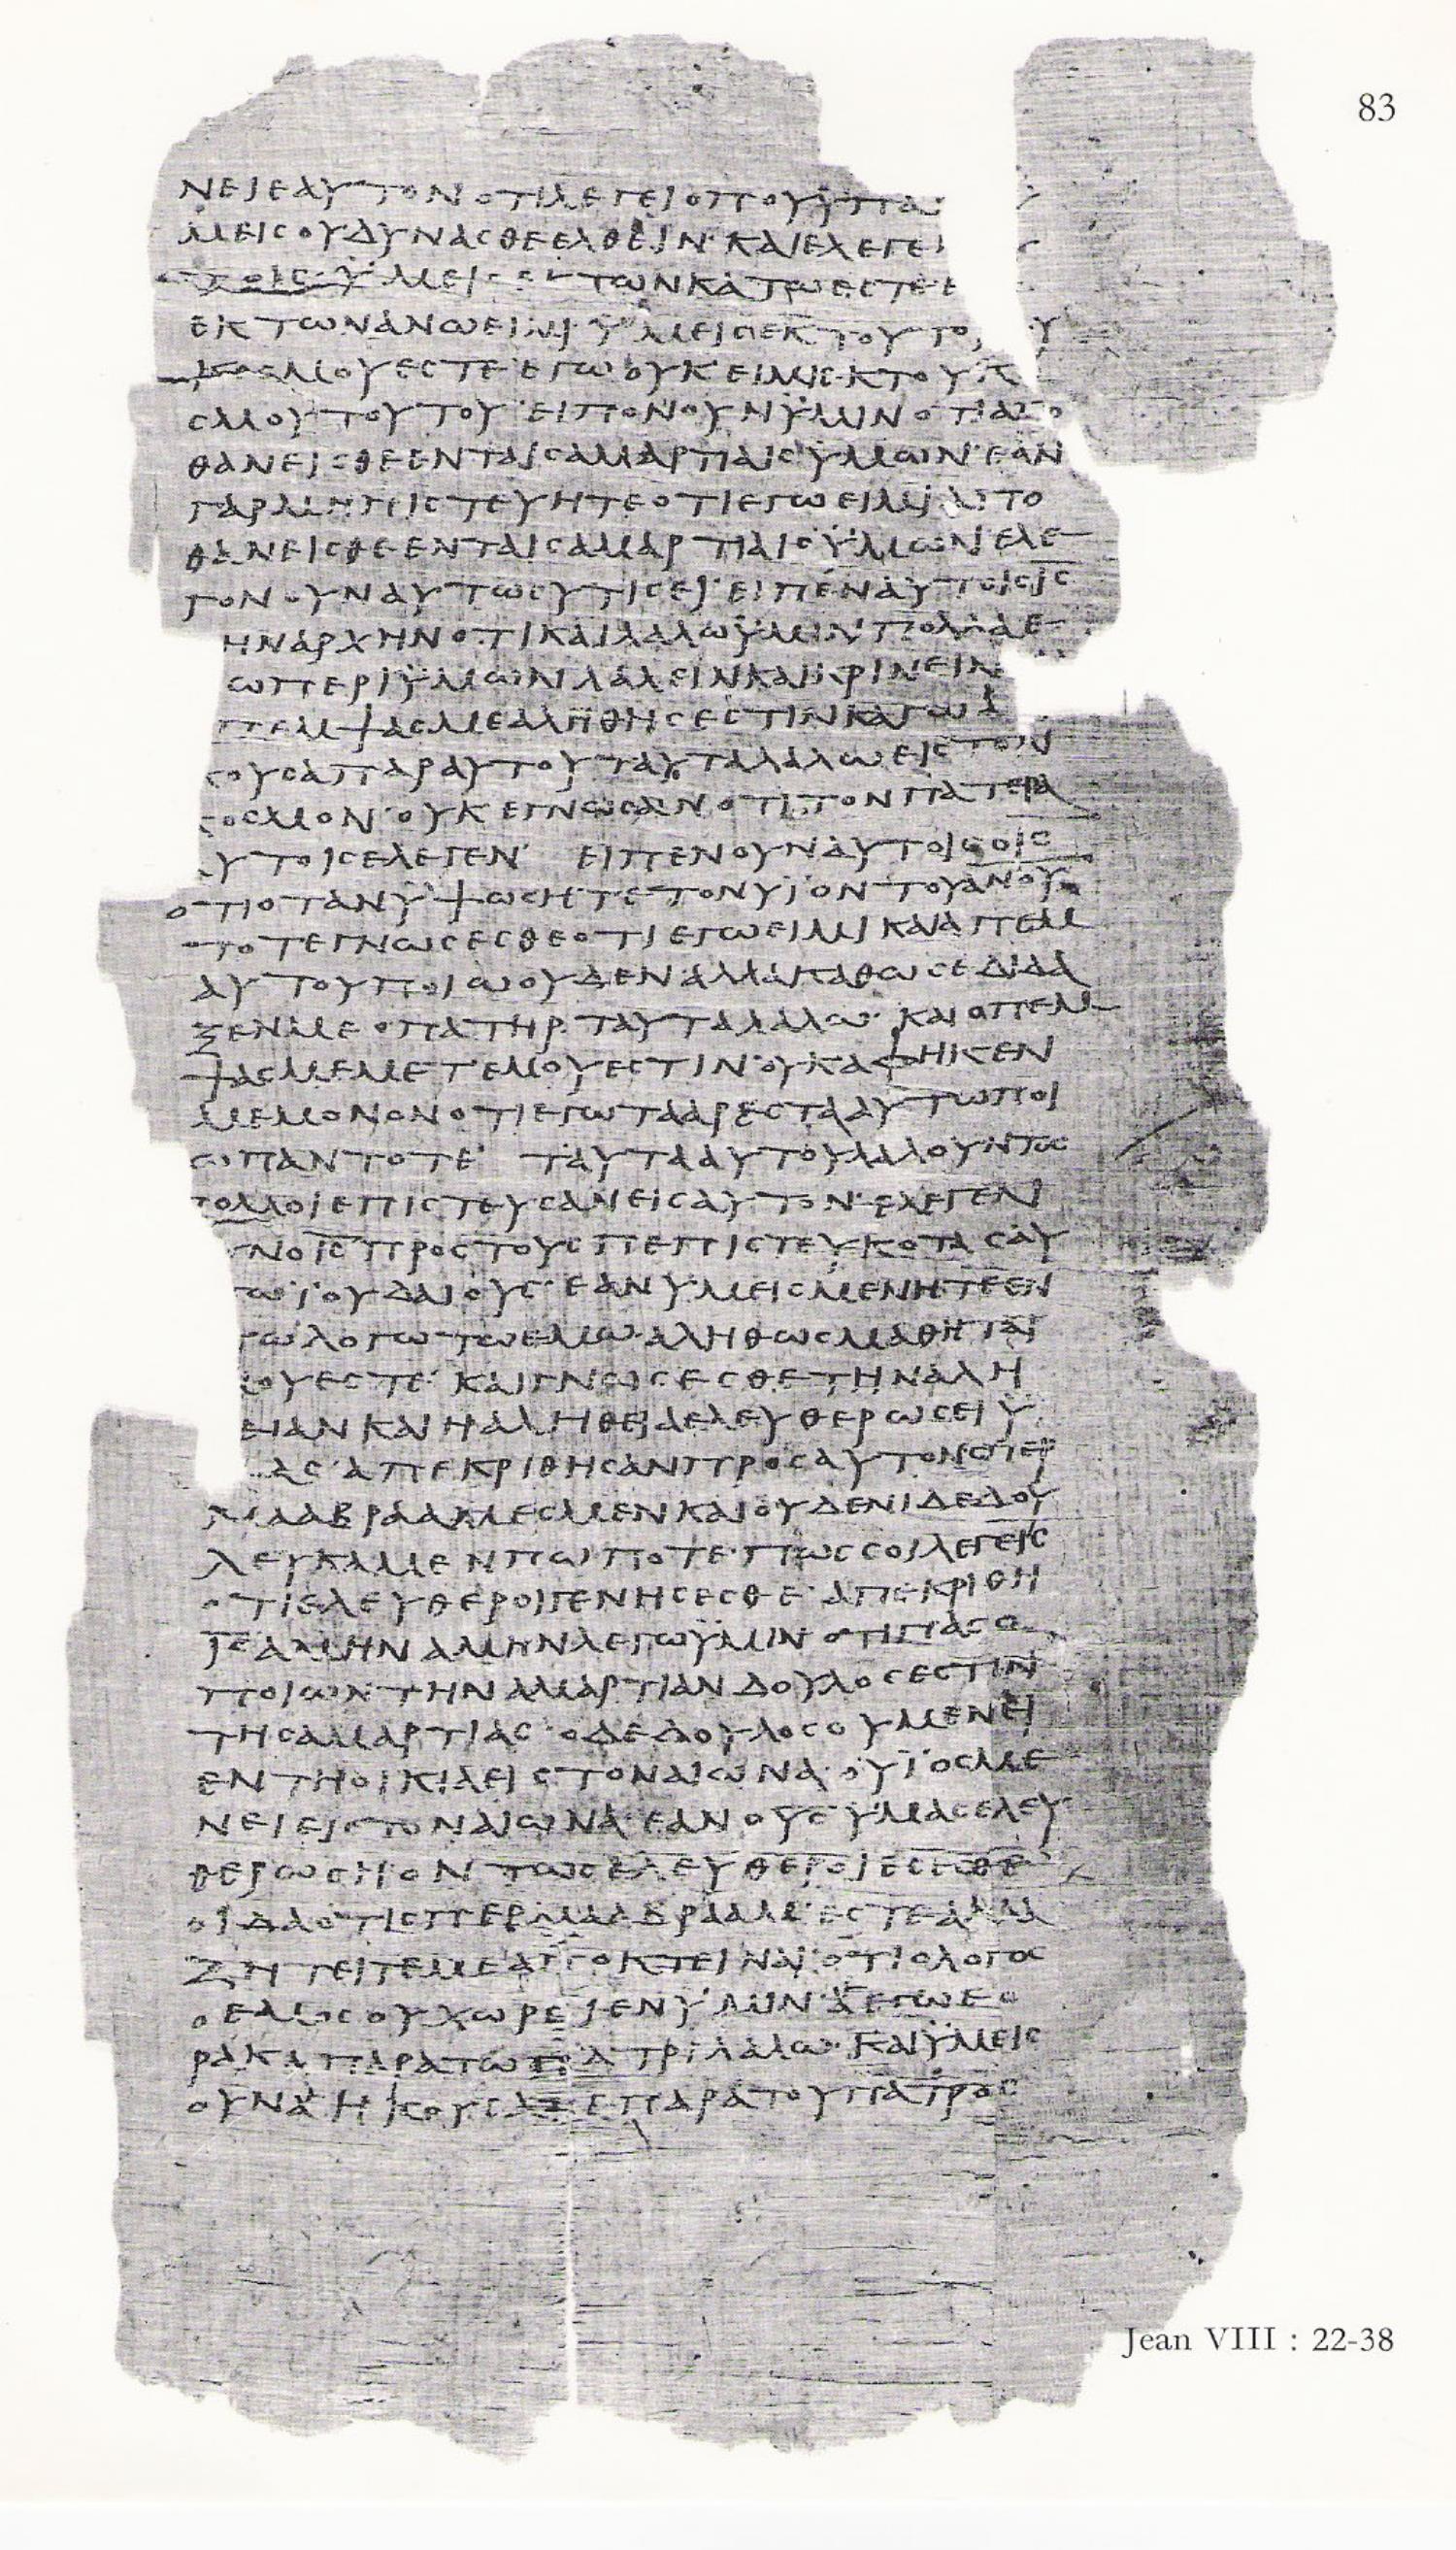 83
ΝΕΙΕΑΥΤΟΝΟΤΙΛΕΓΕΙΟΠΟΥΫΠΑ
ΜΕΙCΟΥΔΥΝΑCΘΕΕΛΘΕΙΝ· ΚΑΙΕΛΕΓΕ
ΤΟΙC· ΫΜΕΙC ΕΚ ΤΩΝΚΑΤΩΕCΤΕ· Ε
ΕΚΤΩΝΑΝΩΕΙΜΙ· ΫΜΕΙCΕΚΤΟΥΤΟΥ
ΚΟCΜΟΥΕCΤΕ· ΕΓΩΟΥΚΕΙΜΙΕΚΤΟΥΚ
CΜΟΥΤΟΥΤΟΥ· ΕΙΠΟΝΟΥΝΫΜΙΝΟΤΙΑΠΟ
ΘΑΝΕΙCΘΕΕΝΤΑΙCΑΜΑΡΤΙΑΙCΫΜΩΝ· ΕΑΝ
ΓΑΡΜΗΠΙCΤΕΥΗΤΕΟΤΙΕΓΩΕΙΜΙ ΑΠΟ
ΘΑΝΕΙCΘΕΕΝΤΑΙCΑΜΑΡΤΙΑΙCΫΜΩΝ ΕΛΕ
ΓΟΝΟΥΝΑΥΤΩCΥΤΙCΕΙ· ΕΙΠΕΝΑΥΤΟΙCΙC
ΗΝΑΡΧΗΝΟΤΙΚΑΙΛΑΛΩΫΜΙΝ· ΠΟΛΛΑΕ
ΩΠΕΡΙΫΜΩΝΛΑΛΕΙΝΚΑΙΚΡΙΝΕΙΝ
ΠΕΜΨΑCΜΕΑΛΗΘΗCΕCΤΙΝΚΑΓΩΑ
ΚΟΥCΑΠΑΡΑΥΤΟΥΤΑΥΤΑΛΑΛΩΕΙCΤΟΝ
ΚΟCΜΟΝ· ΟΥΚΕΓΝΩCΑΝΟΤΙΤΟΝΠΑΤΕΡΑ
ΑΥΤΟΙCΕΛΕΓΕΝ· ΕΙΠΕΝΟΥΝΑΥΤΟΙCΟΙC
ΟΤΙΟΤΑΝΫΨΩCΗΤΕΤΟΝΥΙΟΝΤΟΥΑΝΟΥ
ΤΟΤΕΓΝΩCΕCΘΕΟΤΙΕΓΩΕΙΜΙΚΑΙΑΠΕΜ
ΑΥΤΟΥΠΟΙΩΟΥΔΕΝΑΛΛΑΚΑΘΩCΕΔΙΔΑ
ΞΕΝΜΕΟΠΑΤΗΡ· ΤΑΥΤΑΛΑΛΩ· ΚΑΙΟΠΕΜ
ΨΑCΜΕΜΕΤΕΜΟΥΕCΤΙΝ· ΟΥΚΑΦΗΚΕΝ
ΜΕΜΟΝΟΝΟΤΙΕΓΩΤΑΑΡΕCΤΑΑΥΤΩΠΟΙ
ΩΠΑΝΤΟΤΕ· ΤΑΥΤΑΑΥΤΟΥΛΑΛΟΥΝΤΟC
ΠΟΛΛΟΙΕΠΙCΤΕΥCΑΝΕΙCΑΥΤΟΝ· ΕΛΕΓΕΝ
ΝΟΙC ΠΡΟCΤΟΥCΠΕΠΙCΤΕΥΚΟΤΑCΑΥ
ΤΩΙΟΥΔΑΙΟΥC· ΕΑΝΥΜΕΙCΜΕΝΗΤΕΕΝ
ΤΩΛΟΓΩΤΩΕΜΩ· ΑΛΗΘΩCΜΑΘΗΤΑΙ
ΜΟΥΕCΤΕ· ΚΑΙΓΝΩCΕCΘΕΤΗΝΑΛΗ
ΕΙΑΝΚΑΙΗΑΛΗΘΕΙΑΕΛΕΥΘΕΡΩCΕΙΫ
ΑC· ΑΠΕΚΡΙΘΗCΑΝΠΡΟCΑΥΤΟΝCΠΕΡ
ΜΑΑΒΡΑΑΜΕCΜΕΝΚΑΙΟΥΔΕΝΙΔΕΔΟΥ
ΛΕΥΚΑΜΕΝΠΩΠΟΤΕ· ΠΩCCΟΙΛΕΓΕΙC
ΟΤΙΕΛΕΥΘΕΡΟΙΓΕΝΗCΕCΘΕ· ΑΠΕΚΡΙΘΗ
ΙCΑΜΗΝΑΜΗΝΛΕΓΩΫΜΙΝΟΤΙΠΑCΟ
ΠΟΙΩΝΤΗΝΑΜΑΡΤΙΑΝΔΟΥΛΟCΕCΤΙΝ
ΤΗCΑΜΑΡΤΙΑC· ΟΔΕΔΟΥΛΟCΟΥΜΕΝΕΙ
ΕΝΤΗΟΙΚΙΑΕΙCΤΟΝΑΙΩΝΑ· ΟΥΙΟCΜΕ
ΝΕΙΕΙCΤΟΝΑΙΩΝΑ· ΕΑΝΟΥCΥΜΑCΕΛΕΥ
ΘΕΡΩCΗΟΝΤΩCΕΛΕΥΘΕΡΟΙΕCΕCΘΕ
ΟΙΔΑΟΤΙCΠΕΡΜΑΑΒΡΑΑΜ· ΕCΤΕΑΛΛΑ
ΖΗΤΕΙΤΕΜΕΑΠΟΚΤΕΙΝΑΙ· ΟΤΙΟΛΟΓΟC
ΟΕΜΟCΟΥΧΩΡΕΙΕΝΥΜΙΝ· ΑΕΓΩΕΟ
ΡΑΚΑΠΑΡΑΤΩΠΑΤΡΙΛΑΛΩ· ΚΑΙΫΜΕΙC
ΟΥΝΑΗΚΟΥCΑΤΕΠΑΡΑΤΟΥΠΑΤΡΟC
Jean VIII : 22-38